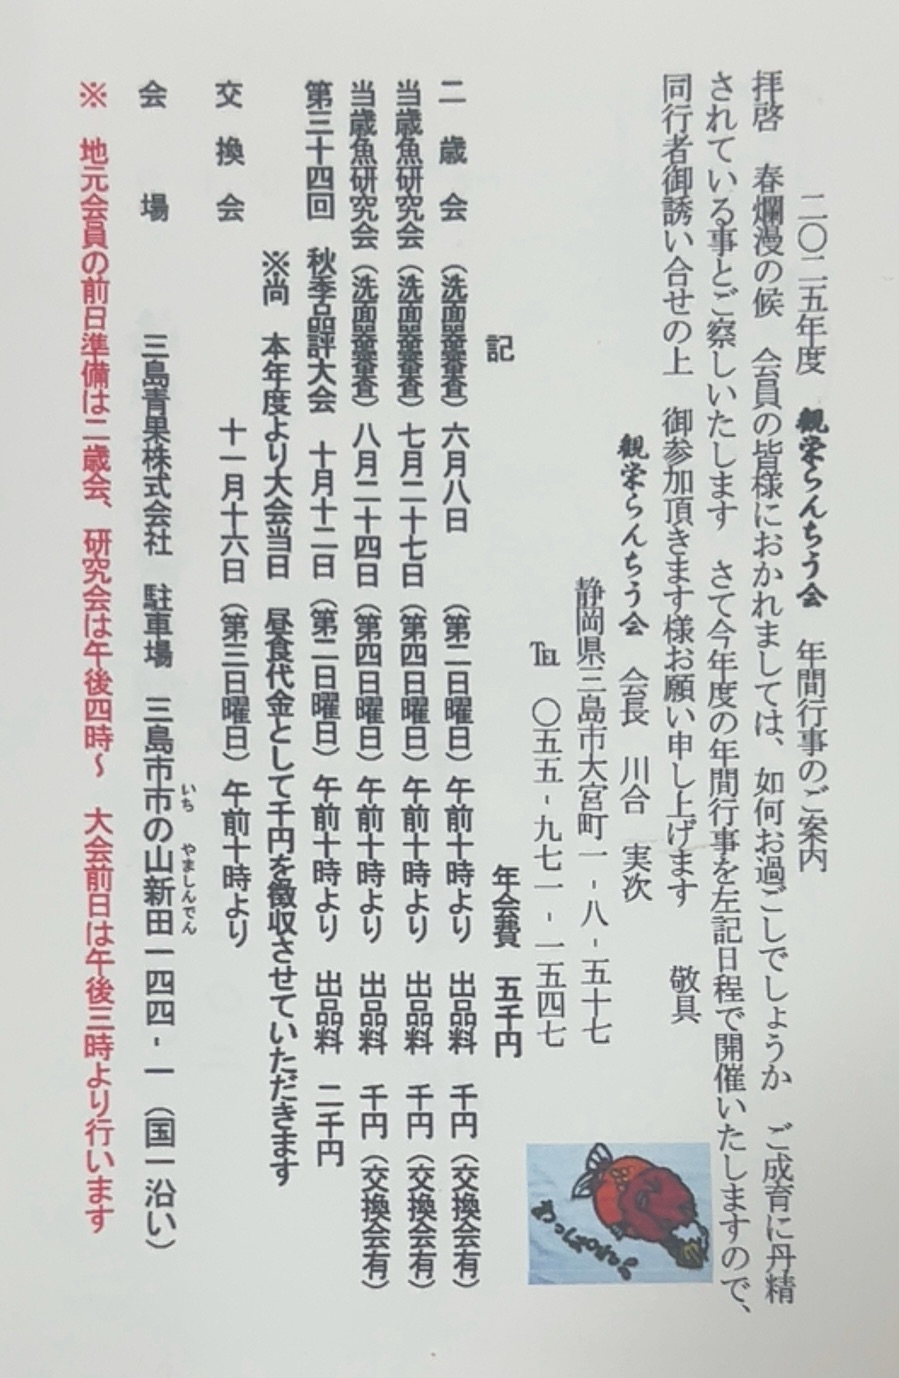 二〇二五年度　観栄らんちう会　年間行事のご案内
拝啓　春爛漫の候　会員の皆様におかれましては、如何お過ごしでしょうか　ご成育に丹精
されている事とご察しいたします　さて今年度の年間行事を左記日程で開催いたしますので、
同行者御誘い合せの上　御参加頂きます様お願い申し上げます　　敬具
観栄らんちう会　会長　川合　実次
静岡県三島市大宮町一-八-五十七
℡　〇五五-九七一-一五四七
記　年会費　五千円
二歳会（洗面器審査）六月八日　（第二日曜日）午前十時より　出品料　千円（交換会有）
当歳魚研究会（洗面器審査）七月二十七日（第四日曜日）午前十時より　出品料　千円（交換会有）
当歳魚研究会（洗面器審査）八月二十四日（第四日曜日）午前十時より　出品料　千円（交換会有）
第三十四回　秋季品評大会　十月十二日（第二日曜日）午前十時より　出品料　二千円
※尚　本年度より大会当日　昼食代金として千円を徴収させていただきます
交換会　十一月十六日（第三日曜日）午前十時より
会　場　三島青果株式会社　駐車場　三島市市の山新田一四四-一（国一沿い）
いち　やましんでん
※　地元会員の前日準備は二歳会、研究会は午後四時～　大会前日は午後三時より行います